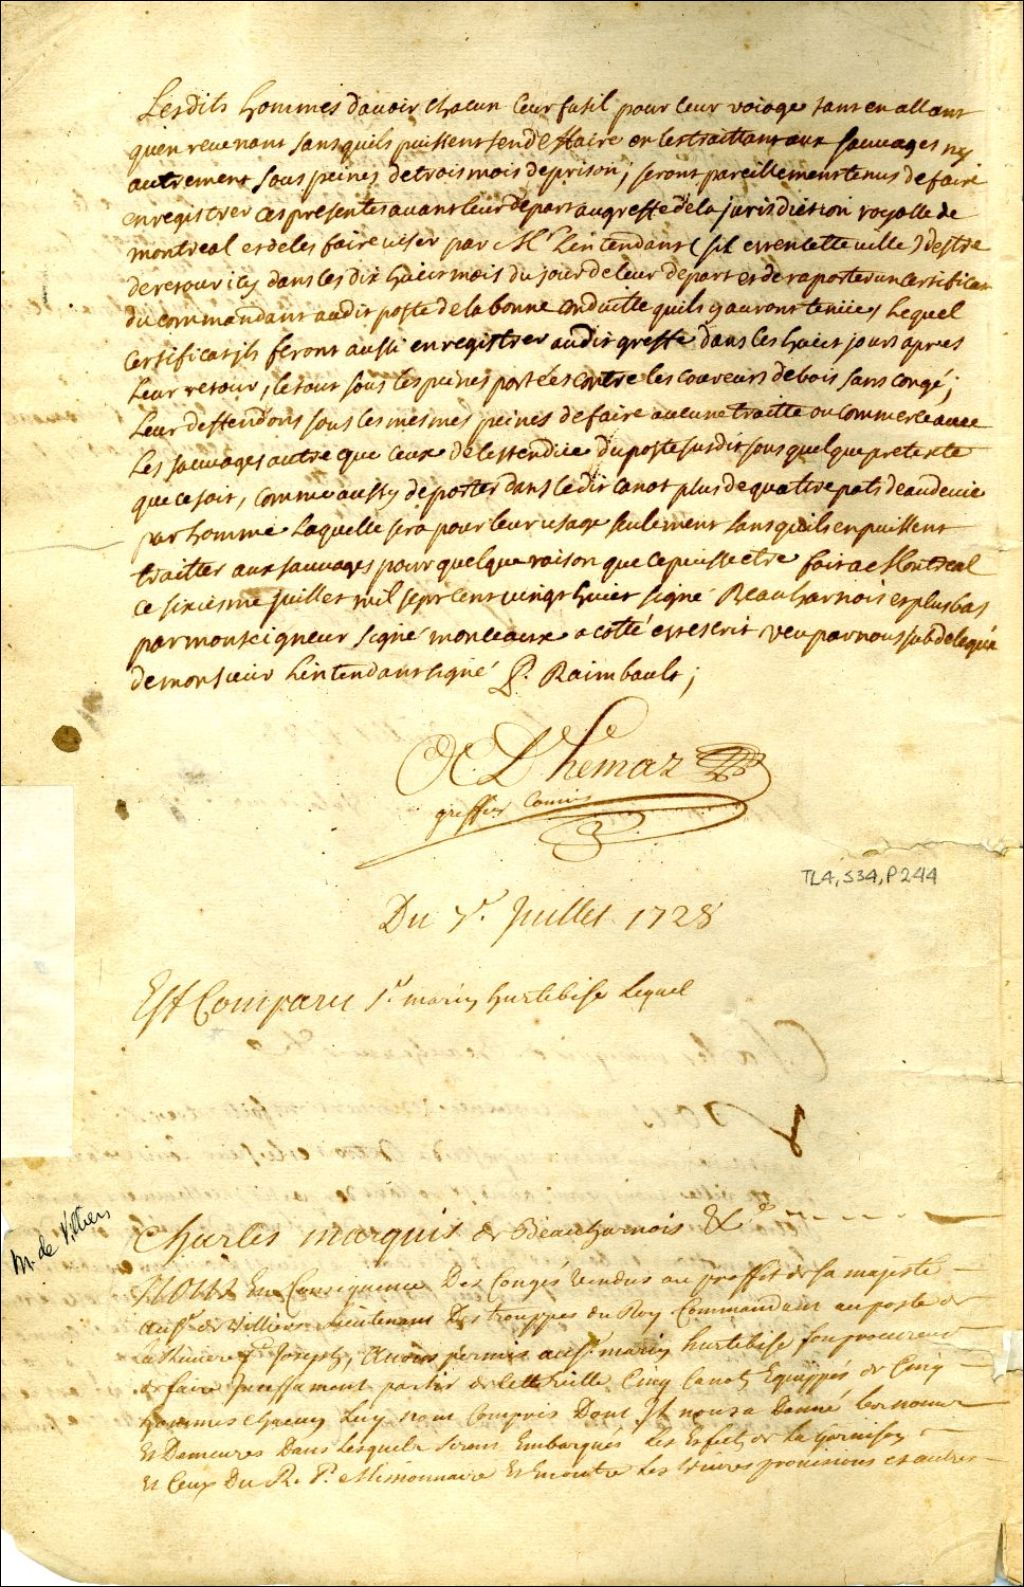 Lesdits hommes davoir chacun leur fusil pour leur voiage tant en allant
quen revenant sans quils puissent sen deffaire en les traittant aux sauvages ny
autrement sous peines de trois mois de prison; seront pareillement tenus de faire
enregistrer ces presentes avant leur depart au greffe de la jurisdiction royalle de
montreal et de les faire viser par Mr. Lintendant (sil est en cette ville) destre
de retour icy dans les dix huict mois du jour de leur depart et de raporter un certificat
du commandant audit poste de la bonne conduitte quils y auront tenüe, Lequel
certificat ils feront aussi enregistrer audit greffe dans les huict jours apres
leur retour, le tout sous les peines portées contre les coureurs de bois sans congé;
Leur deffendons sous les mesmes peines de faire aucune traitte ou commerce avec
Les sauvages autre que ceux de lestendüe du poste susdit sous quelque pretexte
que ce soit, comme aussy de porter dans ledit canot plus de quatre pots deaudevie
par homme Laquelle sera pour leur usage seulement sans quils en puissent
traitter aux sauvages pour quelque raison que ce puisse estre fait a Montreal
ce sixiesme juillet mil sept cent vingt huict signé Beauharnois et plus bas
par monseigneur signé monceaux a costé est escrit veu par nous subdelegué
de monsieur Lintendant signé P. Raimbault;
greffier Commis
TL4, S34, P244
Du 7e. Juillet 1728
Est Comparu Sr. marin hurtebise Lequel
M. de Villiers
Charles marquis de Beauharnois &c.
Nous En Consequence Des Congés vendus au proffit de sa majesté
au Sr. de Villiers Lieutenant Des trouppes du Roy Commandant au poste de
La Riviere St. Joseph, Avons permis au Sr. marin hurtebise son procureur
de faire Incessament partir de cette ville Cinq Canots Equippés de Cinq
hommes chacun Luy non Compris Dont Il nous a Donné Les noms
Et Demeures Dans Lesquels seront Embarqués Les Effects de la Garnison
Et Ceux Du R. P. Missionnaire Et Encontre Les vivres provisions et autres